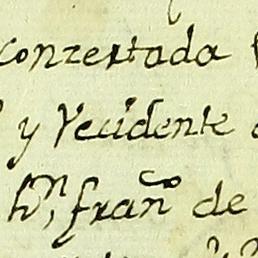 conzertada
y Vecidente
hn, franco de